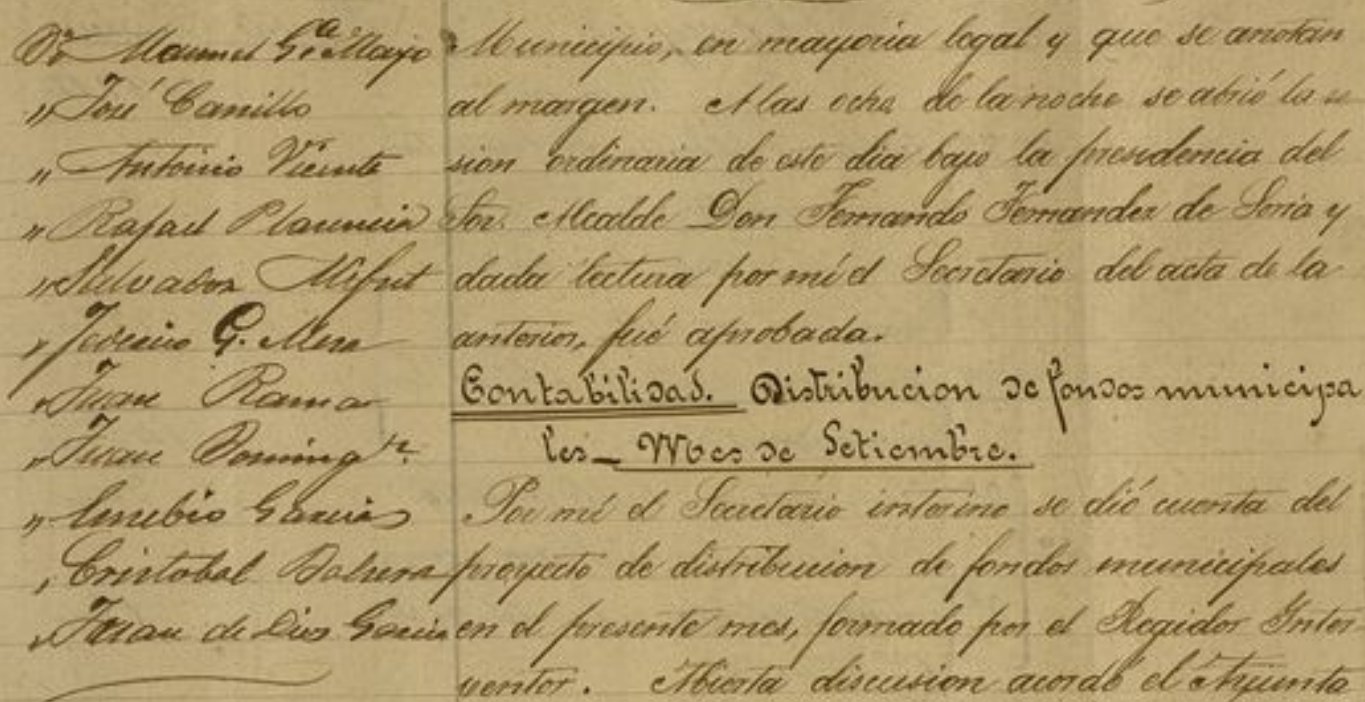 Dn Manuel G.ª Mayo
" José Carrillo
" Antonio Vicente
" Rafael Plasencia
" Salvador Mifsut
" G. Mera
" Juan Rama
" Juan Doming.z
" Eusebio Garcia
" Cristobal
" Juan de Dios Garcia
Municipio, en mayoria legal y que se anotan
al margen. A las ocho de la noche se abrió la se
sion ordinaria de este dia bajo la presidencia del
Sor. Alcalde Don Fernando Fernandez de Soria y
dada lectura por mí el Secretario del acta de la
anterior, fué aprobada.
Contabilidad. Distribucion de fondos municipa
les - Mes de Setiembre.
Por mí el Secretario interino se dió cuenta del
proyecto de distribucion de fondos municipales
en el presente mes, formado por el Regidor Inter
ventor. Abierta discusion acordó el Ayunta